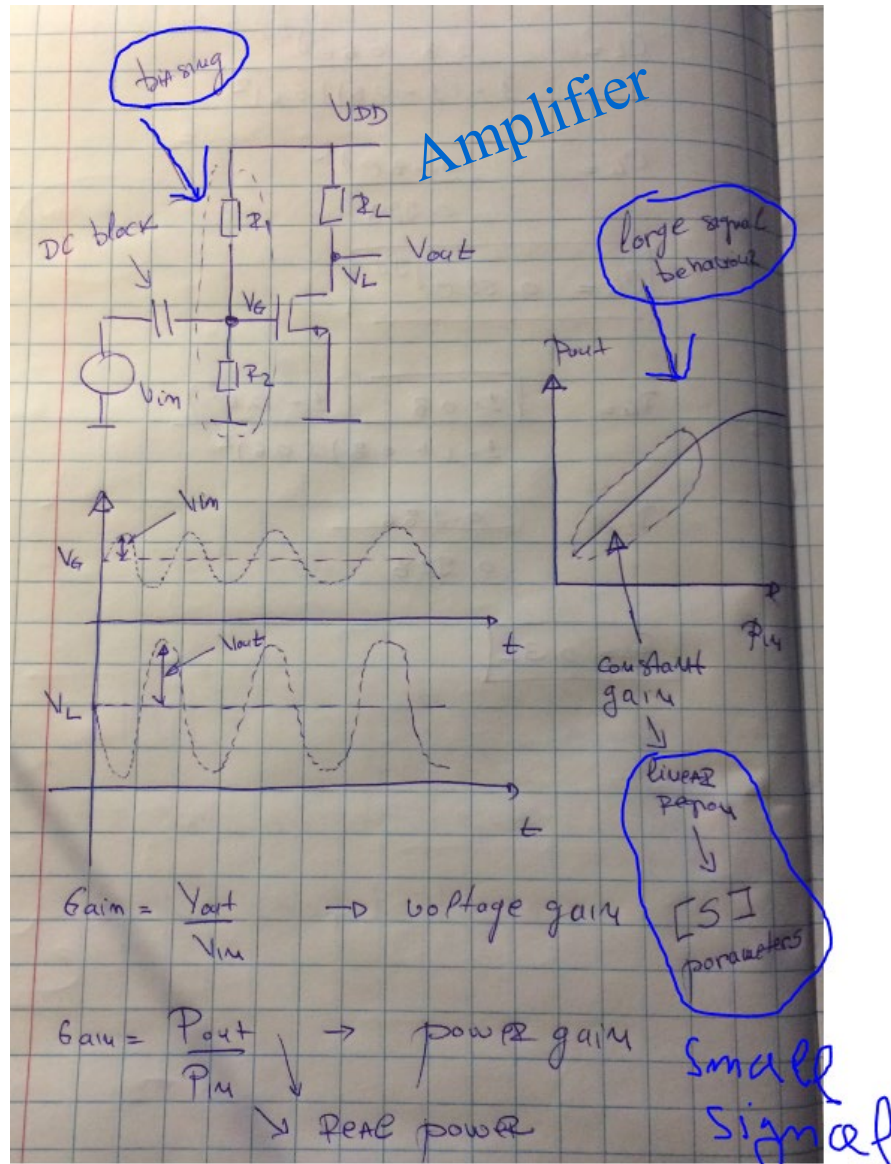 biasing
Amplifier
VDD
R1
RL
DC block
Vout
VL
VG
R2
Vin
large signal
behaviour
Pout
Pin
constant
gain
linear
region
[S]
parameters
small
signal
Vin
VG
t
Vout
VL
t
Gain = Vout / Vin → voltage gain
Gain = Pout / Pin → power gain
Real power